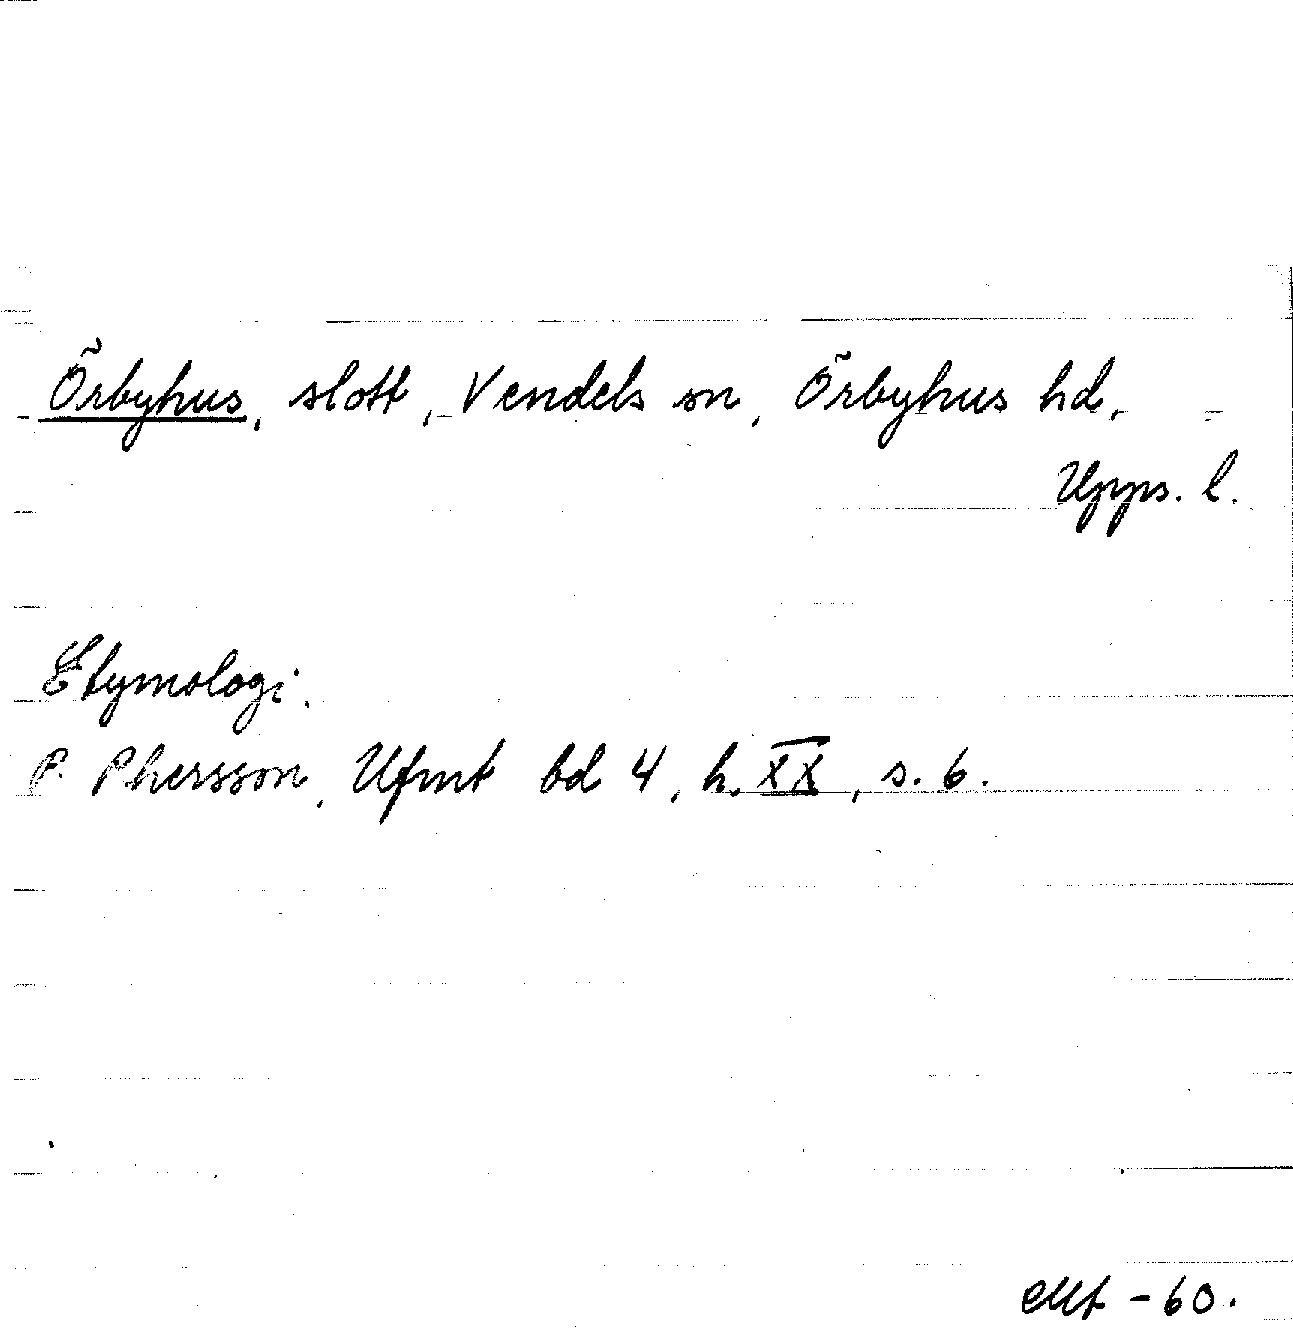 Örbyhus, slott, Vendels sn, Örbyhus hd,
Upps. l.
Etymologi.
P. Phersson, Ufmt bd 4, h. XX, s. 6.
-60.